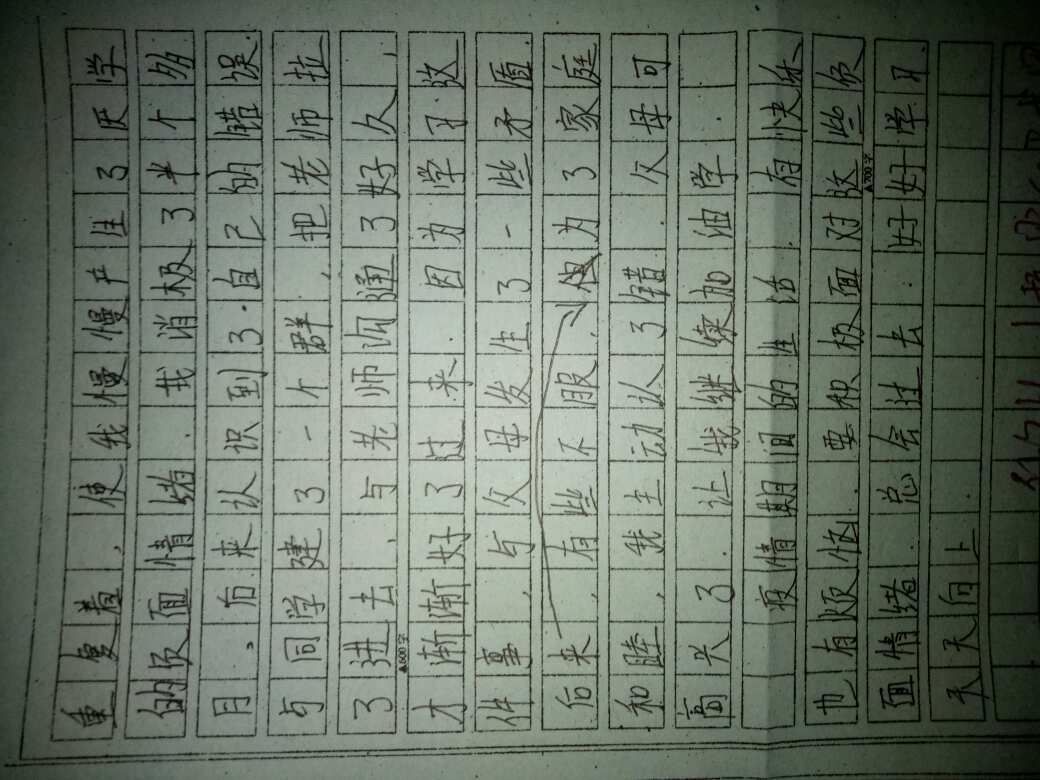 重复着,使我慢慢产生了厌学
的负面情绪.我消极了半个多
月。后来认识到了.自己的错误.
与同学建了一个群,把老师拉
了进去,与老师沟通了好久,
▲600字
才渐渐好了过来.因为学习.这
件事,与父母发生了一些矛盾.
后来,有些不服.但为了家庭
和睦,我主动认了错.父母可
高兴了.让我继续加油学.
疫情期间的生活.有快乐
也有烦恼.要积极面对这些负
▲700字
面情绪.总会过去.好好学习.
天天向上.